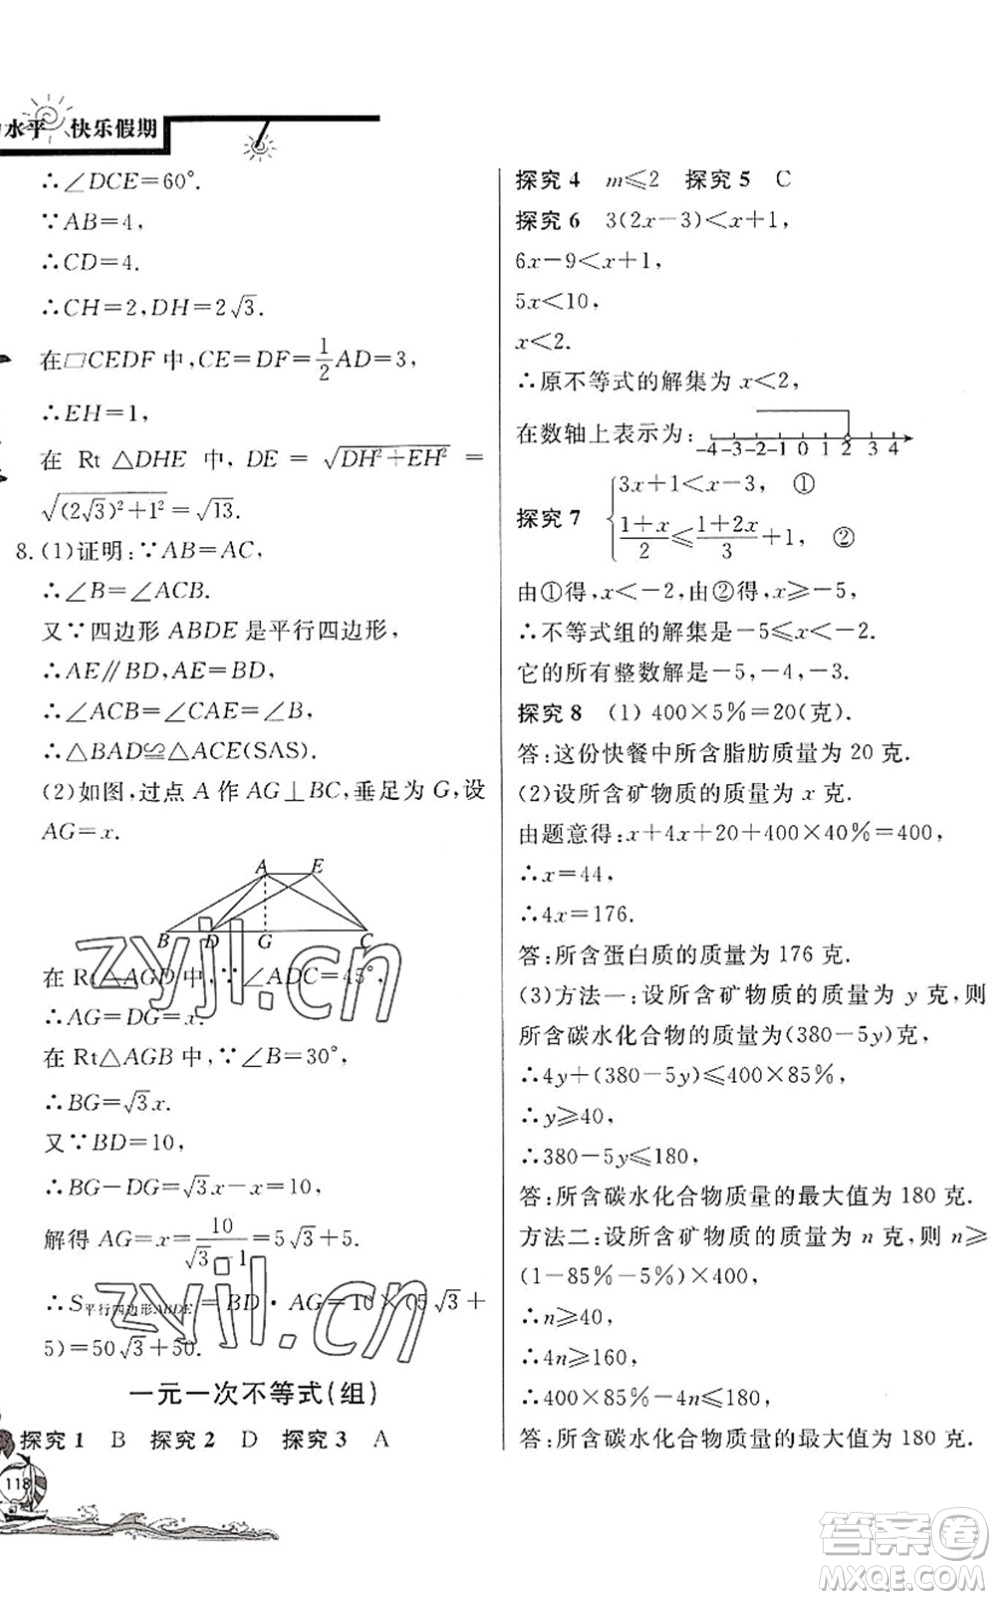 水平 快乐假期
∴∠DCE=60°.
∵AB=4,
∴CD=4.
∴CH=2,DH=2√3.
在□CEDF中,CE=DF=1/2AD=3,
∴EH=1,
在 Rt △DHE 中, DE = √(DH²+EH²) =
√((2√3)²+1²)=√13.
8.(1)证明:∵AB=AC,
∴∠B=∠ACB.
又∵四边形ABDE是平行四边形,
∴AE∥BD,AE=BD,
∴∠ACB=∠CAE=∠B,
∴△BAD≌△ACE(SAS).
(2)如图,过点A作AG⊥BC,垂足为G,设
AG=x.
A E
B D G C
在Rt△AGD中,∵∠ADC=45°,
∴AG=DG=x.
在Rt△AGB中,∵∠B=30°,
∴BG=√3x.
又∵BD=10,
∴BG-DG=√3x-x=10,
解得AG=x=10/(√3-1)=5√3+5.
∴S平行四边形ABDE=BD·AG=10×(5√3+
5)=50√3+50.
一元一次不等式(组)
探究1 B 探究2 D 探究3 A
118
探究4 m≤2 探究5 C
探究6 3(2x-3)<x+1,
6x-9<x+1,
5x<10,
x<2.
∴原不等式的解集为x<2,
在数轴上表示为:
-4 -3 -2 -1 0 1 2 3 4
探究7 {3x+1<x-3, ①
(1+x)/2≤(1+2x)/3+1, ②
由①得,x<-2,由②得,x≥-5,
∴不等式组的解集是-5≤x<-2.
它的所有整数解是-5,-4,-3.
探究8 (1)400×5%=20(克).
答:这份快餐中所含脂肪质量为20克.
(2)设所含矿物质的质量为x克.
由题意得:x+4x+20+400×40%=400,
∴x=44,
∴4x=176.
答:所含蛋白质的质量为176克.
(3)方法一:设所含矿物质的质量为y克,则
所含碳水化合物的质量为(380-5y)克.
∴4y+(380-5y)≤400×85%,
∴y≥40,
∴380-5y≤180,
答:所含碳水化合物质量的最大值为180克.
方法二:设所含矿物质的质量为n克,则n≥
(1-85%-5%)×400,
∴n≥40,
∴4n≥160,
∴400×85%-4n≤180,
答:所含碳水化合物质量的最大值为180克.
zyjl.cn
zyjl.cn
答案圈
MXQE.COM